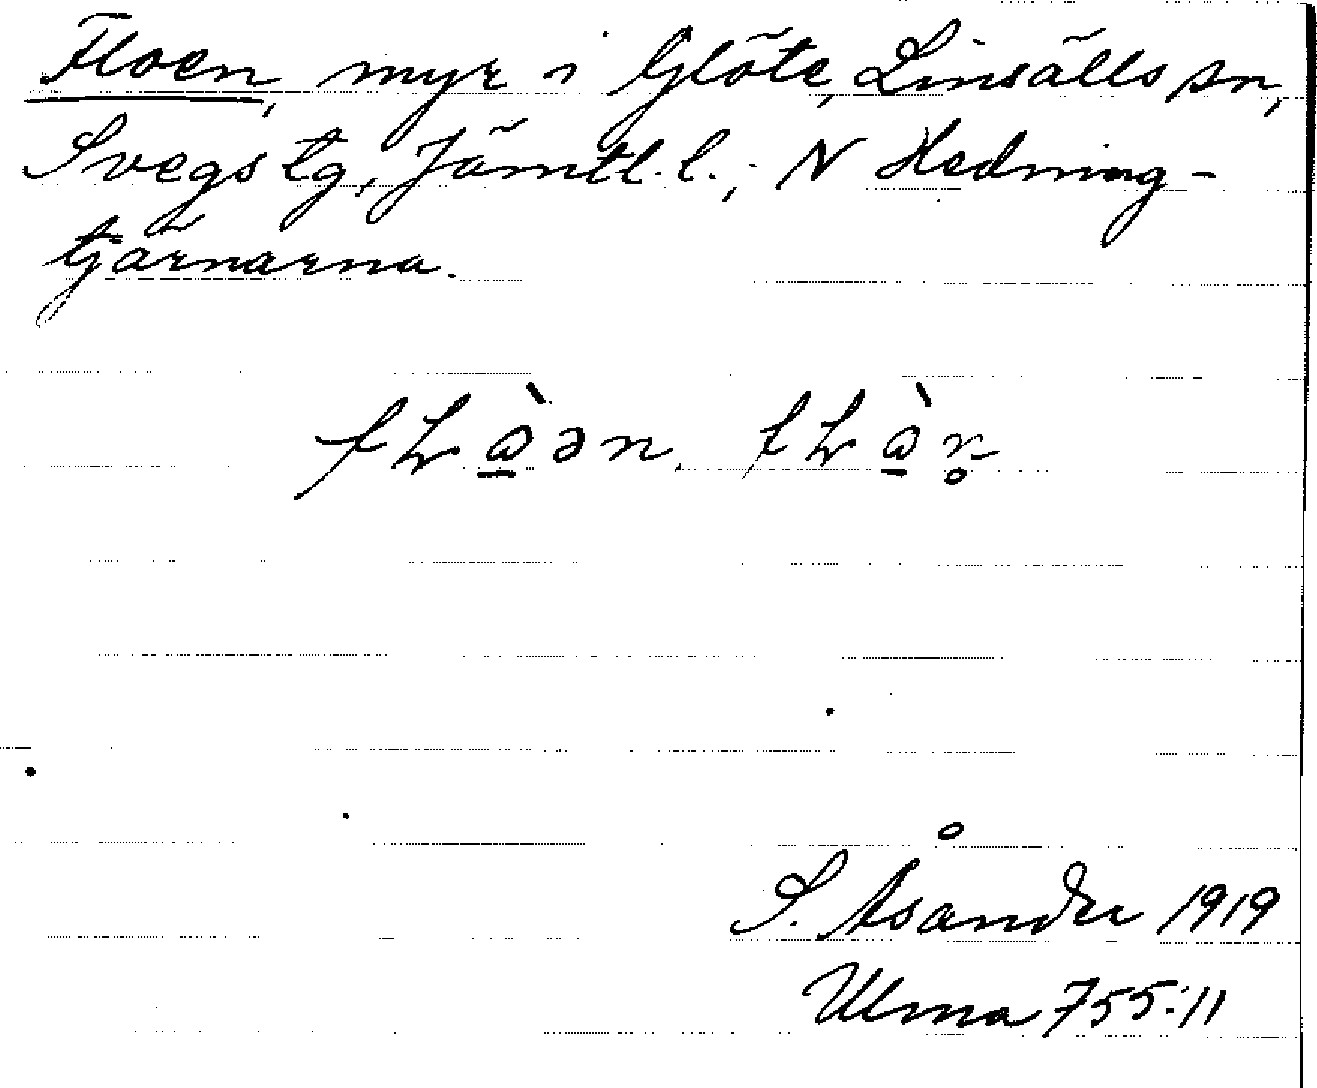 Floen, myr i Glöte, Linsälls sn,
Svegs tg, Jämtl. l.; N Hedning-
tjärnarna.
S. Åsander 1919
Ulma 755:11